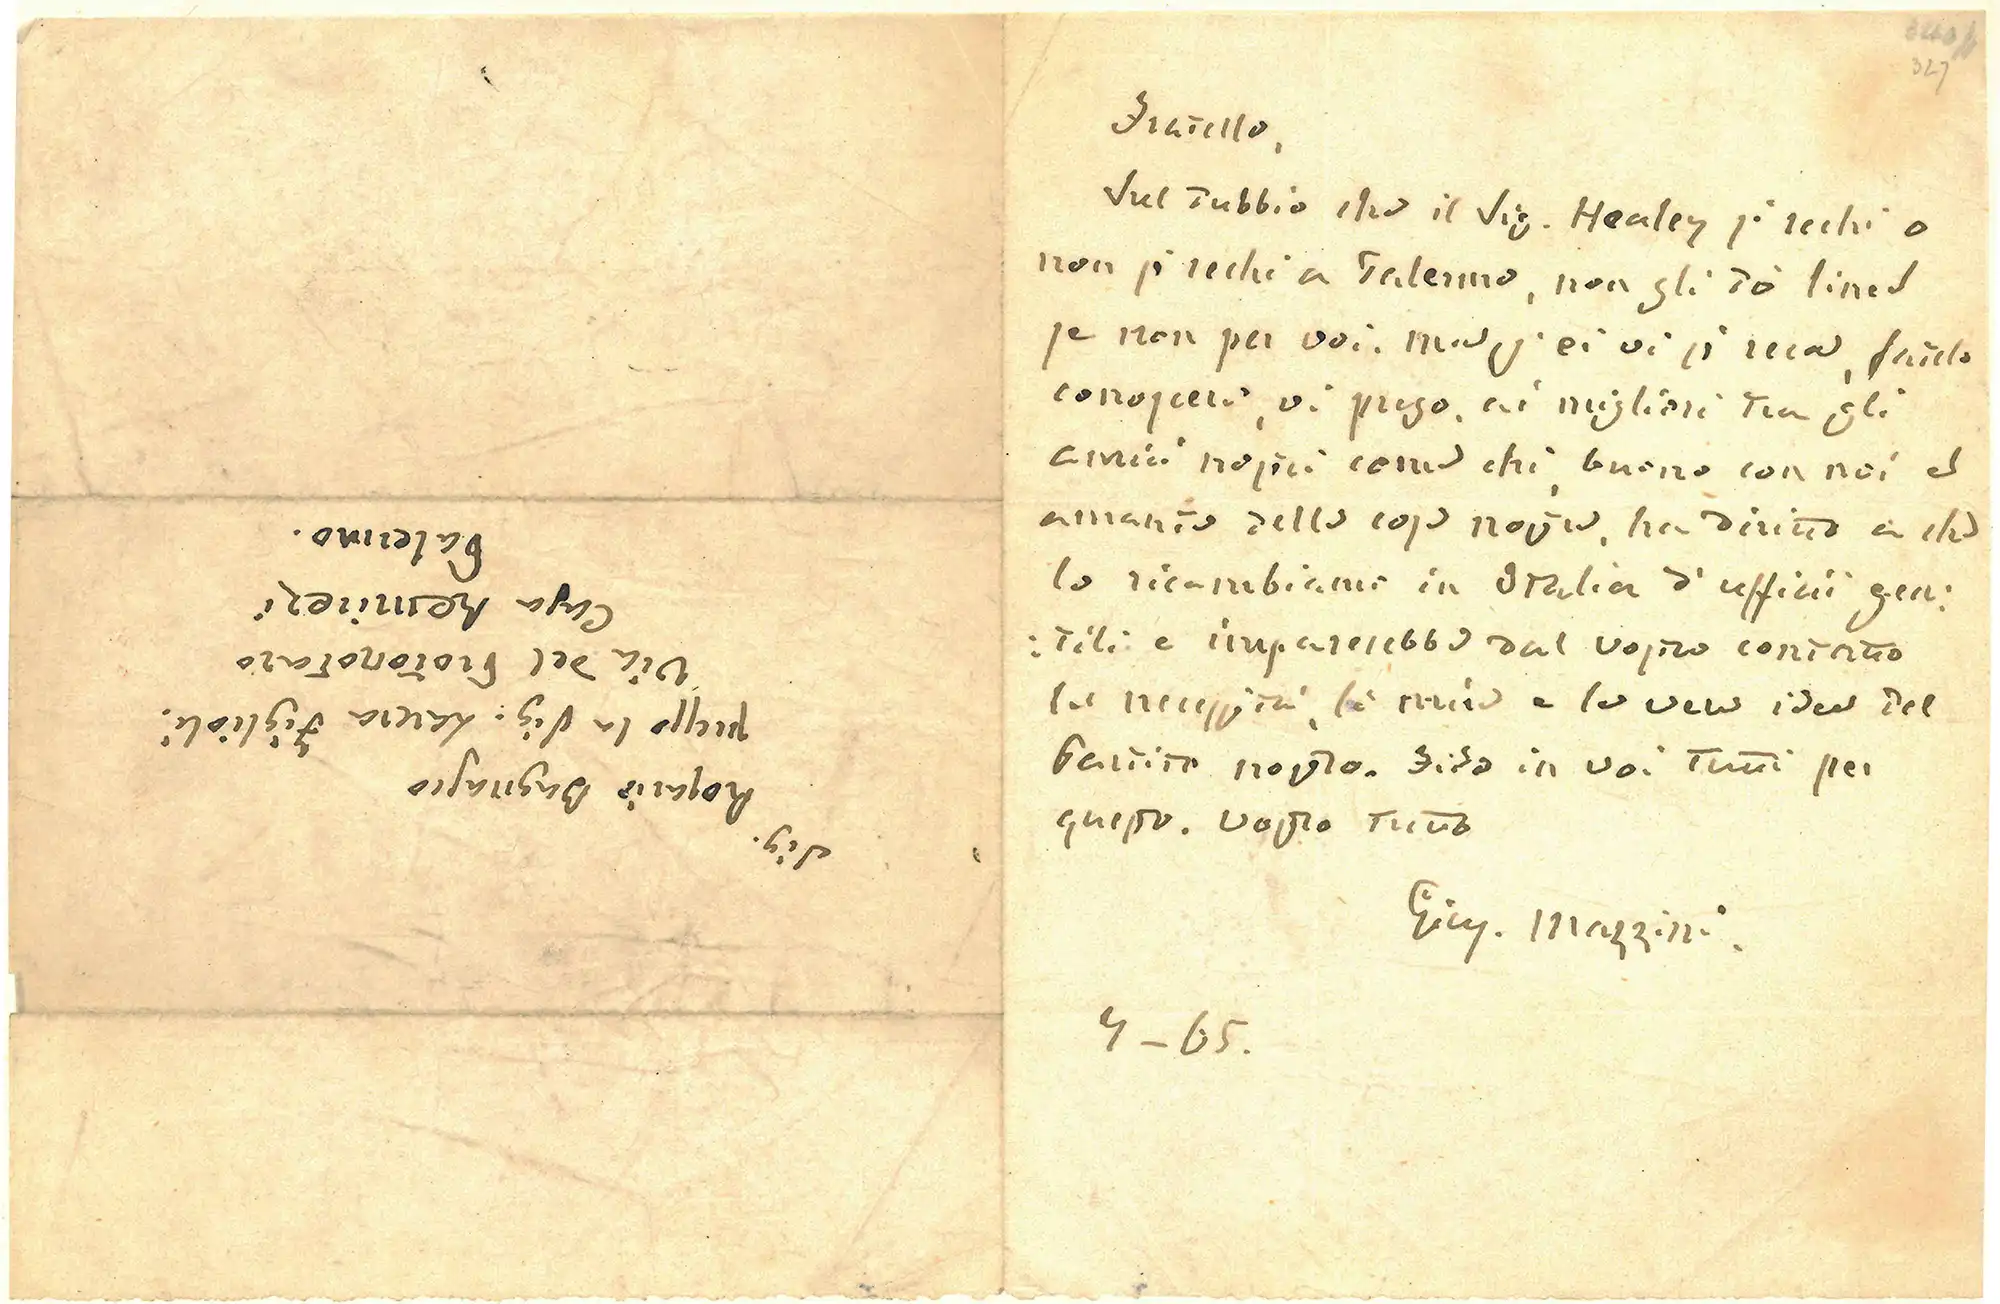 327
Fratello,
Nel dubbio che il Sig. Healey si rechi o
non si rechi a Palermo, non gli do linee
se non per voi. Ma s' ei vi si reca, fatelo
conoscere, vi prego, ai migliori tra gli
amici nostri come chi, buono con noi e
amante delle cose nostre, ha diritto a che
lo ricambiamo in Italia d' ufficii gen:
:tili e imparerebbe dal vostro contatto
le necessità, le mire e la vera idea del
Partito nostro. Fido in voi tutti per
questo. Vostro tutto
Gius. Mazzini.
4 - 65.
Sig.
Rosario Bagnasco
presso la Sig: Laura Figlioli.
Via del Protonotaro
Casa Ramirez
Palermo.